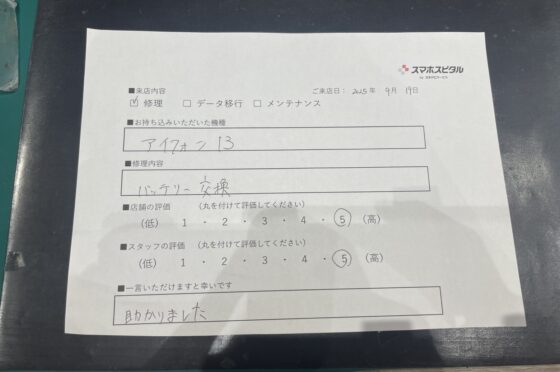 スマホスピタル
■来店内容
ご来店日： 2025年 9月 19日
☑ 修理 □ データ移行 □ メンテナンス
■お持ち込みいただいた機種
アイフォン 13
■修理内容
バッテリー 交換
■店舗の評価 （丸を付けて評価してください）
（低） 1 ・ 2 ・ 3 ・ 4 ・ 5 （高）
■スタッフの評価 （丸を付けて評価してください）
（低） 1 ・ 2 ・ 3 ・ 4 ・ 5 （高）
■一言いただけますと幸いです
助かりました